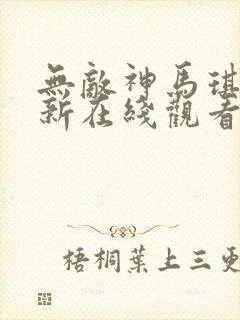 無敵神馬琪
新在綫觀看
梧桐葉上三更